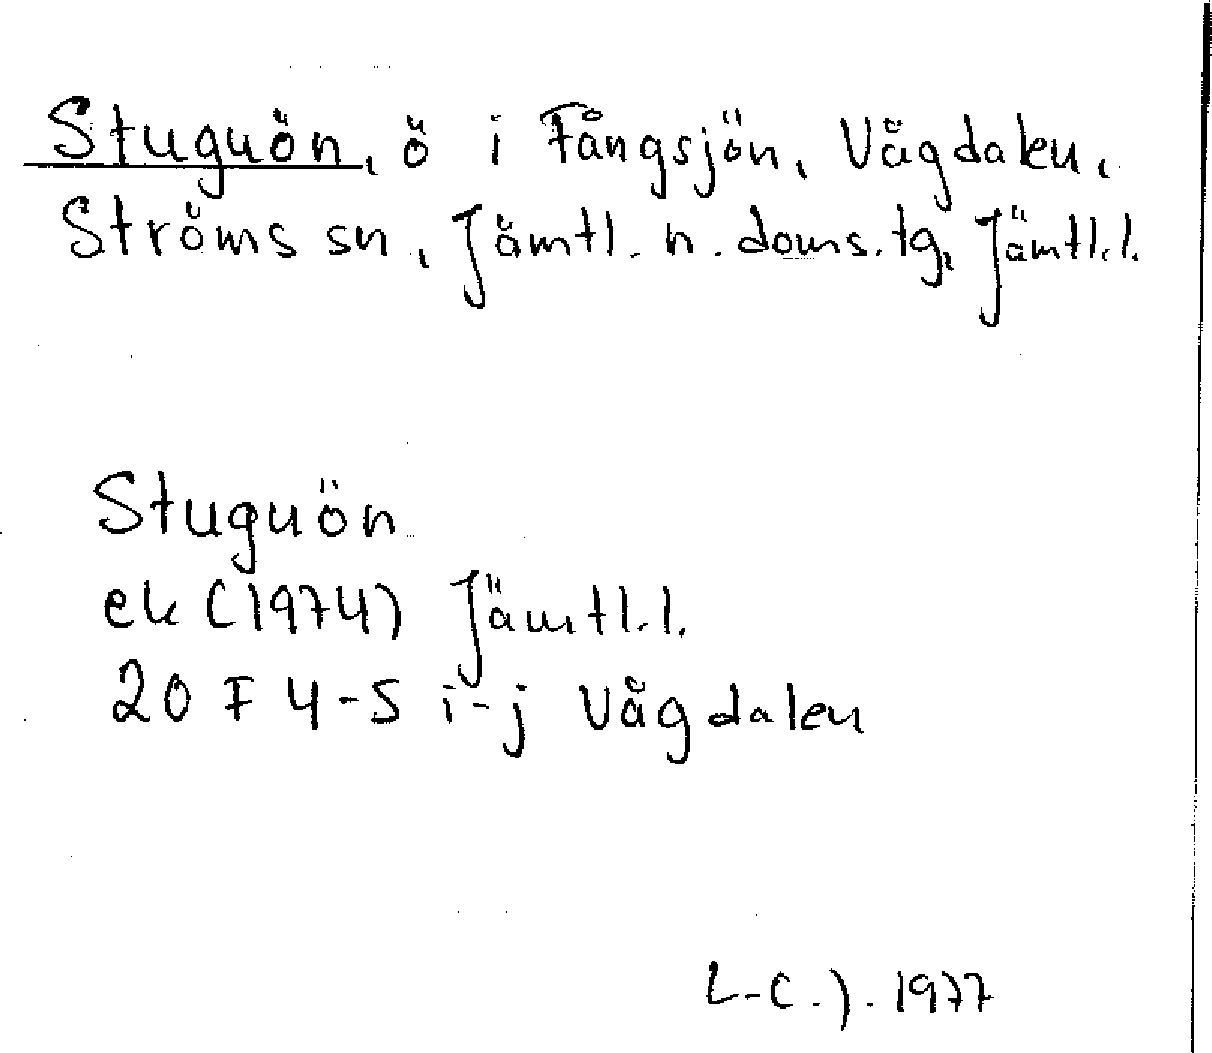 Stuguön, ö i Fångsjön, Vågdalen,
Ströms sn, Jämtl. n. doms. tg, Jämtl.l.
Stuguön
ek (1974) Jämtl.l.
20 F 4-5 i-j Vågdalen
L-C.J. 1977